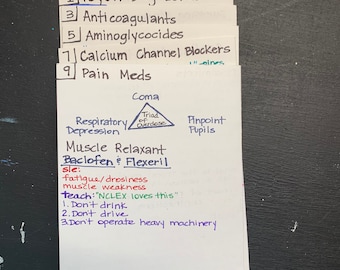 3 Anticoagulants
5 Aminoglycocides
7 Calcium Channel Blockers
9 Pain Meds
Coma
Respiratory Depression
Triad of Overdose
Pinpoint Pupils
Muscle Relaxant
Baclofen & Flexeril
s/e:
fatigue/drosiness
muscle weakness
Teach: "NCLEX loves this"
1. Don't drink
2. Don't drive
3. Don't operate heavy machinery